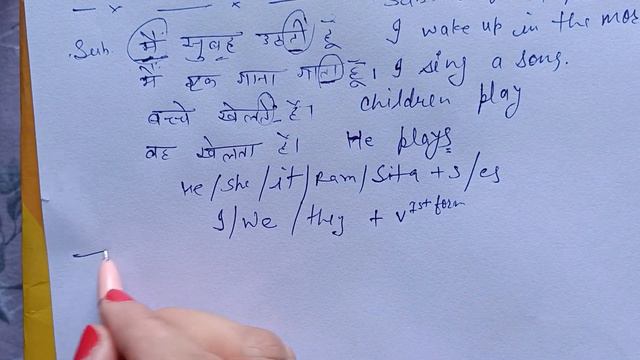 Sub. मैं सुबह उठती हूँ I wake up in the mor
मैं एक गाना गाता हूँ। I sing a song.
बच्चे खेलती हैं। children play
वह खेलता है। He plays
He/She/it/Ram/Sita + s/es
I/We/they + v 1st form